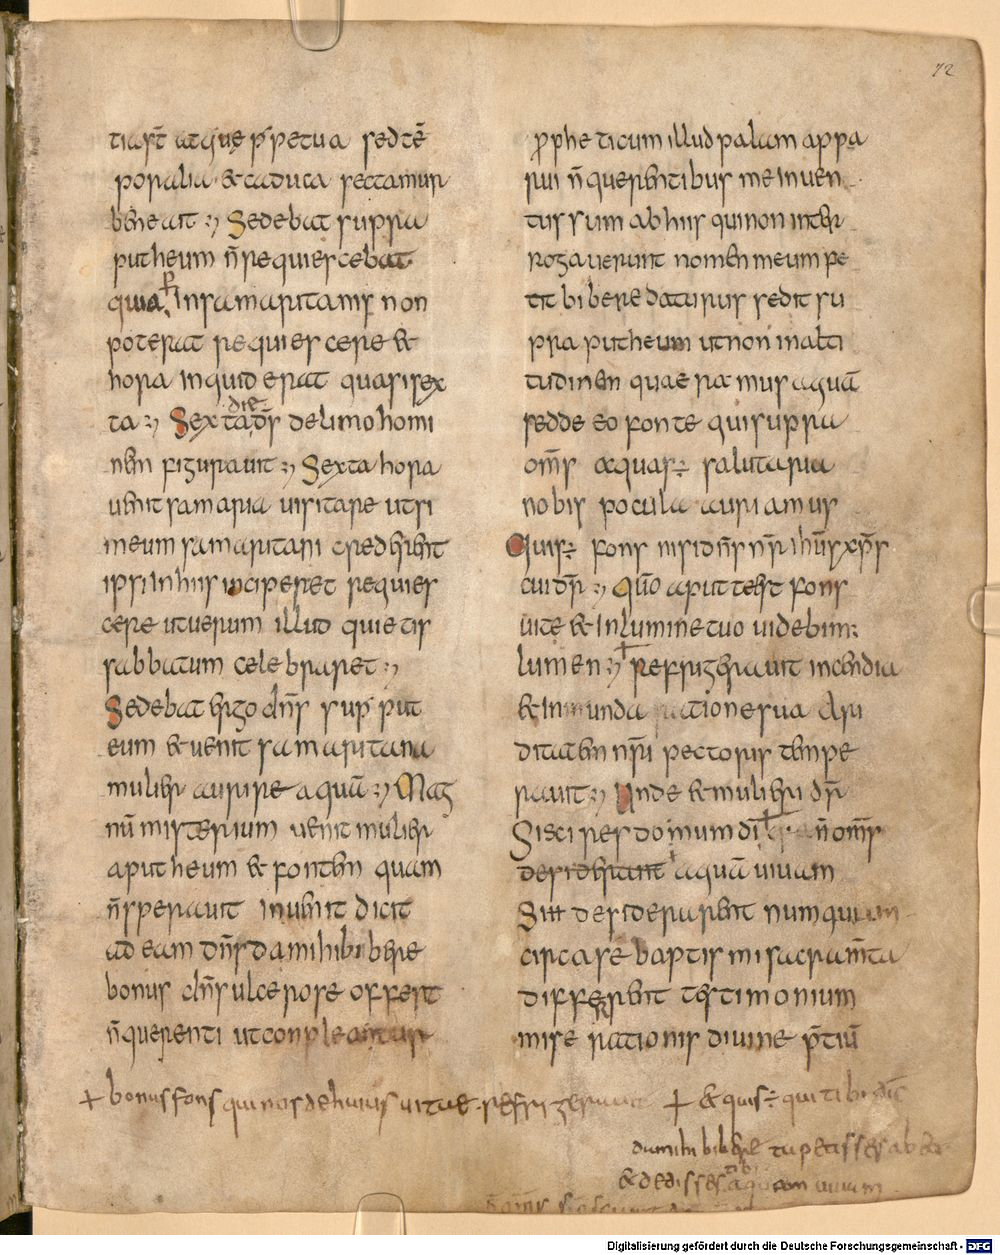 72
tia st̄ atque ꝑpetua sed tē
poralia & caduca sectamur
bene ait :, Sedebat supra
putheum n̄ requiescebat
quia In samaritanis non
poterat requiescere &
hora inquid erat quasi sex
ta :, Sexta die dn̄s de limo homi
nem figurauit :, Sexta hora
uenit samaria uisitare ut si
meum samaritani crederent
ipsi In hiis inciperet requies
cere ut uerum illud quietis
sabbatum celebraret :,
Sedebat ergo dn̄s sup̄ put
eum & uenit samaritana
mulier aurire aquā :, Mag
nū misterium uenit mulier
aputheum & fontem quam
n̄ sperauit inuenit dicit
ad eam dn̄s da mihi bibere
bonus dn̄s ulcerose offert
n̄ querenti ut conpleantur
ꝓpheticum illud palam appa
rui n̄ querentibus me inuen
tus sum ab hiis qui non inter
rogauerunt nomen meum pe
tit bibere daturus sedit su
pra putheum ut non in alti
tudinen quaeramus aquā
sed de eo fonte qui supra
om̄s aquas ÷ salutaria
nobis pocula auriamus
Quis ÷ fons nisi dn̄s nr̄ ihūs xp̄s
cui dr̄ :, Qūo aput te est fons
uite & In lumine tuo uidebim;
lumen :, Refrigerauit incendia
& Inmunda ratione sua ari
ditatem nr̄i pectoris tempe
rauit :, Unde & mulieri dr̄
Si scires domum dī n̄ om̄s
desiderant aquā uiuam
Si desiderarent numquam
circa se baptismi sacram̄ta
differrent testimonium
miserationis diuine p̄tiū
+ bonus fons qui nos de huius uitae refrigerauit
+ & quis ÷ qui tibi dicit
da mihi bibere tu petisses ab eo
& dedisses tibi aquam uiuam
Digitalisierung gefördert durch die Deutsche Forschungsgemeinschaft - DFG